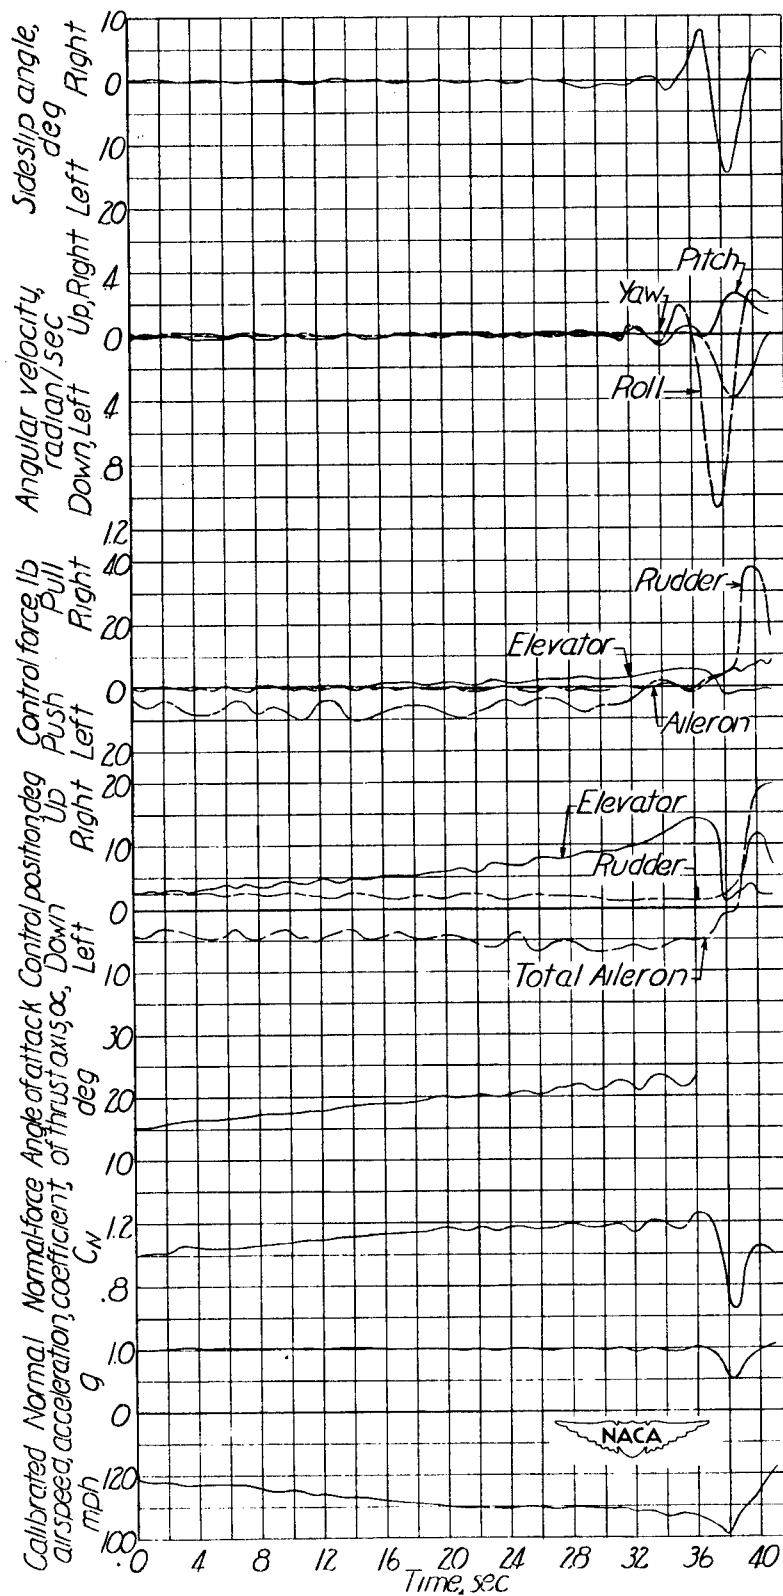 Sideslip angle,
deg
Right
Left
10
0
10
20
Angular velocity,
radian/sec
Up, Right
Down, Left
.4
0
.4
.8
1.2
Pitch
Yaw
Roll
Control force, lb
Pull
Push
Right
Left
40
20
0
20
Rudder
Elevator
Aileron
Control position, deg
Up
Down
Right
Left
20
10
0
10
Elevator
Rudder
Total Aileron
Angle of attack
of thrust axis, α,
deg
30
20
10
Normal-force
coefficient,
C_N
1.2
.8
Normal
acceleration,
g
1.0
0
Calibrated
airspeed,
mph
120
100
NACA
0 4 8 12 16 20 24 28 32 36 40
Time, sec